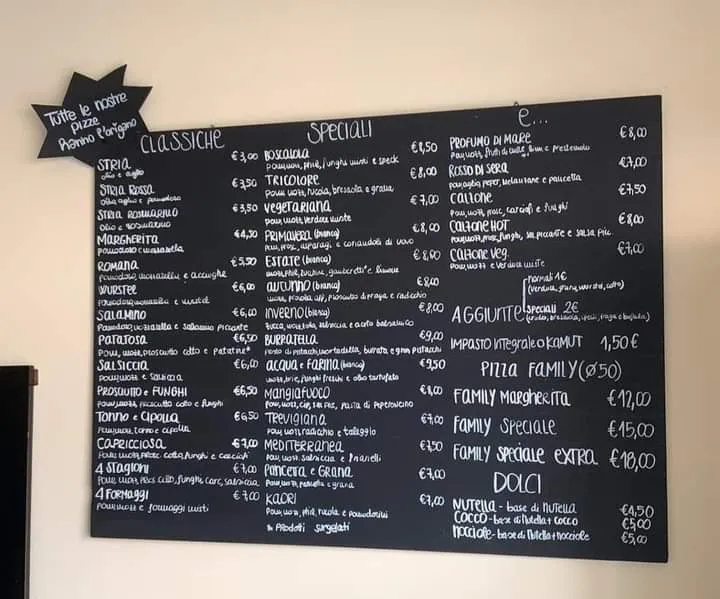 Tutte le nostre
pizze
hanno l'origano
CLASSICHE
STRIA €3,00
olio e aglio
STRIA ROSSA €3,50
olio, aglio e pomodoro
STRIA ROSMARINO €3,50
olio e rosmarino
MARGHERITA €4,50
pomodoro e mozzarella
ROMANA €5,50
pomodoro, mozzarella e acciughe
WURSTEL €6,00
pomodoro, mozzarella e wurstel
SALAMINO €6,00
pomodoro, mozzarella e salamino piccante
PATATOSA €6,50
pom, mozz, prosciutto cotto e patatine*
SALSICCIA €6,00
pom, mozz e salsiccia
PROSCIUTTO e FUNGHI €6,50
pom, mozz, prosciutto cotto e funghi
TONNO e CIPOLLA €6,50
pom, mozz, tonno e cipolla
CAPRICCIOSA €7,00
pom, mozz, prosc. cotto, funghi e carciofi
4 STAGIONI €7,00
pom, mozz, prosc cotto, funghi, carc, salsiccia
4 FORMAGGI €7,00
pom, mozz e formaggi misti
SPECIALI
BOSCAIOLA €8,50
pom, mozz, funghi misti e speck
TRICOLORE €8,00
pom, mozz, rucola, bresaola e grana
VEGETARIANA €7,00
pom, mozz, verdure miste
PRIMAVERA (bianca) €8,00
mozz, prosc, asparagi e coriandoli di uovo
ESTATE (bianca) €8,00
mozz, phil, zucchine, gamberetti* e limone
AUTUNNO (bianca) €8,00
mozz, provola aff, prosciutto di praga e radicchio
INVERNO (bianca) €8,00
zucca, mozz, salsiccia e aceto balsamico
BURRATELLA €9,00
pesto di pistacchi, mortadella, burrata e gran. pistacchi
ACQUA e FARINA (bianca) €9,50
mozz, brie, funghi freschi e olio tartufato
MANGIAFUOCO €8,00
pom, mozz, cip, sal. pic, pasta di peperoncino
TREVIGIANA €7,00
pom, mozz, radicchio e taleggio
MEDITERRANEA €7,50
pom, mozz, salsiccia e friarielli
PANCETTA e GRANA €7,00
pom, mozz, pancetta e grana
KAORI €7,00
pom, mozz, phil, rucola e pomodorini
* Prodotti surgelati
e...
PROFUMO DI MARE €8,00
pom, mozz, frutti di mare, lime e prezzemolo
ROSSO DI SERA €7,00
pom, aglio, peper, melanzane e pancetta
CALZONE €7,50
pom, mozz, prosc, carciofi e funghi
CALZONE HOT €8,00
pom, mozz, prosc, funghi, sal. piccante e salsa pic.
CALZONE VEG. €7,00
pom, mozz e verdure miste
AGGIUNTE
normali 1€
(verdura, grana, wurstel, cotto)
speciali 2€
(crudo, bresaola, speck, praga e bufala)
IMPASTO INTEGRALE O KAMUT 1,50€
PIZZA FAMILY (Ø50)
FAMILY MARGHERITA €12,00
FAMILY SPECIALE €15,00
FAMILY SPECIALE EXTRA €18,00
DOLCI
NUTELLA - base di nutella €4,50
COCCO - base di nutella + cocco €5,00
NOCCIOLE - base di nutella + nocciole €5,00